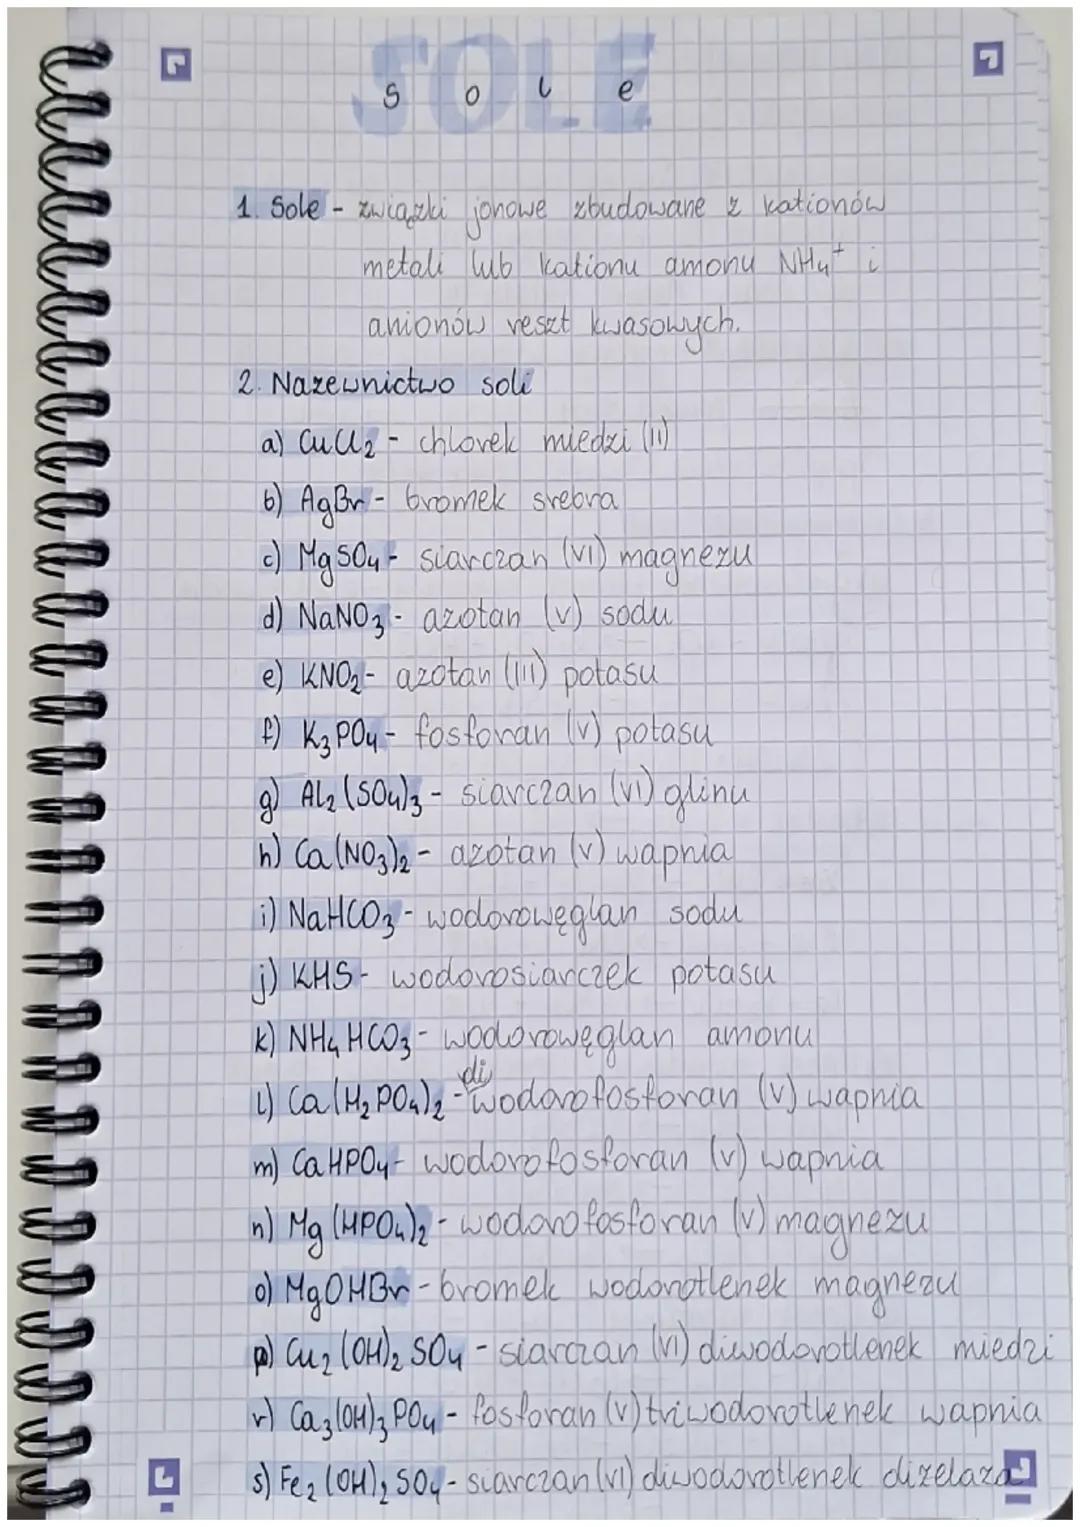 SOLE
s o l e
1. Sole - związki jonowe zbudowane z kationów
metali lub kationu amonu NH₄⁺ i
anionów reszt kwasowych.
2. Nazewnictwo soli
a) CuCl₂ - chlorek miedzi (II)
b) AgBr - bromek srebra
c) MgSO₄ - siarczan (VI) magnezu
d) NaNO₃ - azotan (V) sodu
e) KNO₂ - azotan (III) potasu
f) K₃PO₄ - fosforan (V) potasu
g) Al₂(SO₄)₃ - siarczan (VI) glinu
h) Ca(NO₃)₂ - azotan (V) wapnia
i) NaHCO₃ - wodorowęglan sodu
j) KHS - wodorosiarczek potasu
k) NH₄HCO₃ - wodorowęglan amonu
l) Ca(H₂PO₄)₂ - diwodorofosforan (V) wapnia
m) CaHPO₄ - wodorofosforan (V) wapnia
n) Mg(HPO₄)₂ - wodorofosforan (V) magnezu
o) MgOHBr - bromek wodorotlenek magnezu
p) Cu₂(OH)₂SO₄ - siarczan (VI) diwodorotlenek miedzi
r) Ca₃(OH)₃PO₄ - fosforan (V) triwodorotlenek wapnia
s) Fe₂(OH)₂SO₄ - siarczan (VI) diwodorotlenek diżelaza